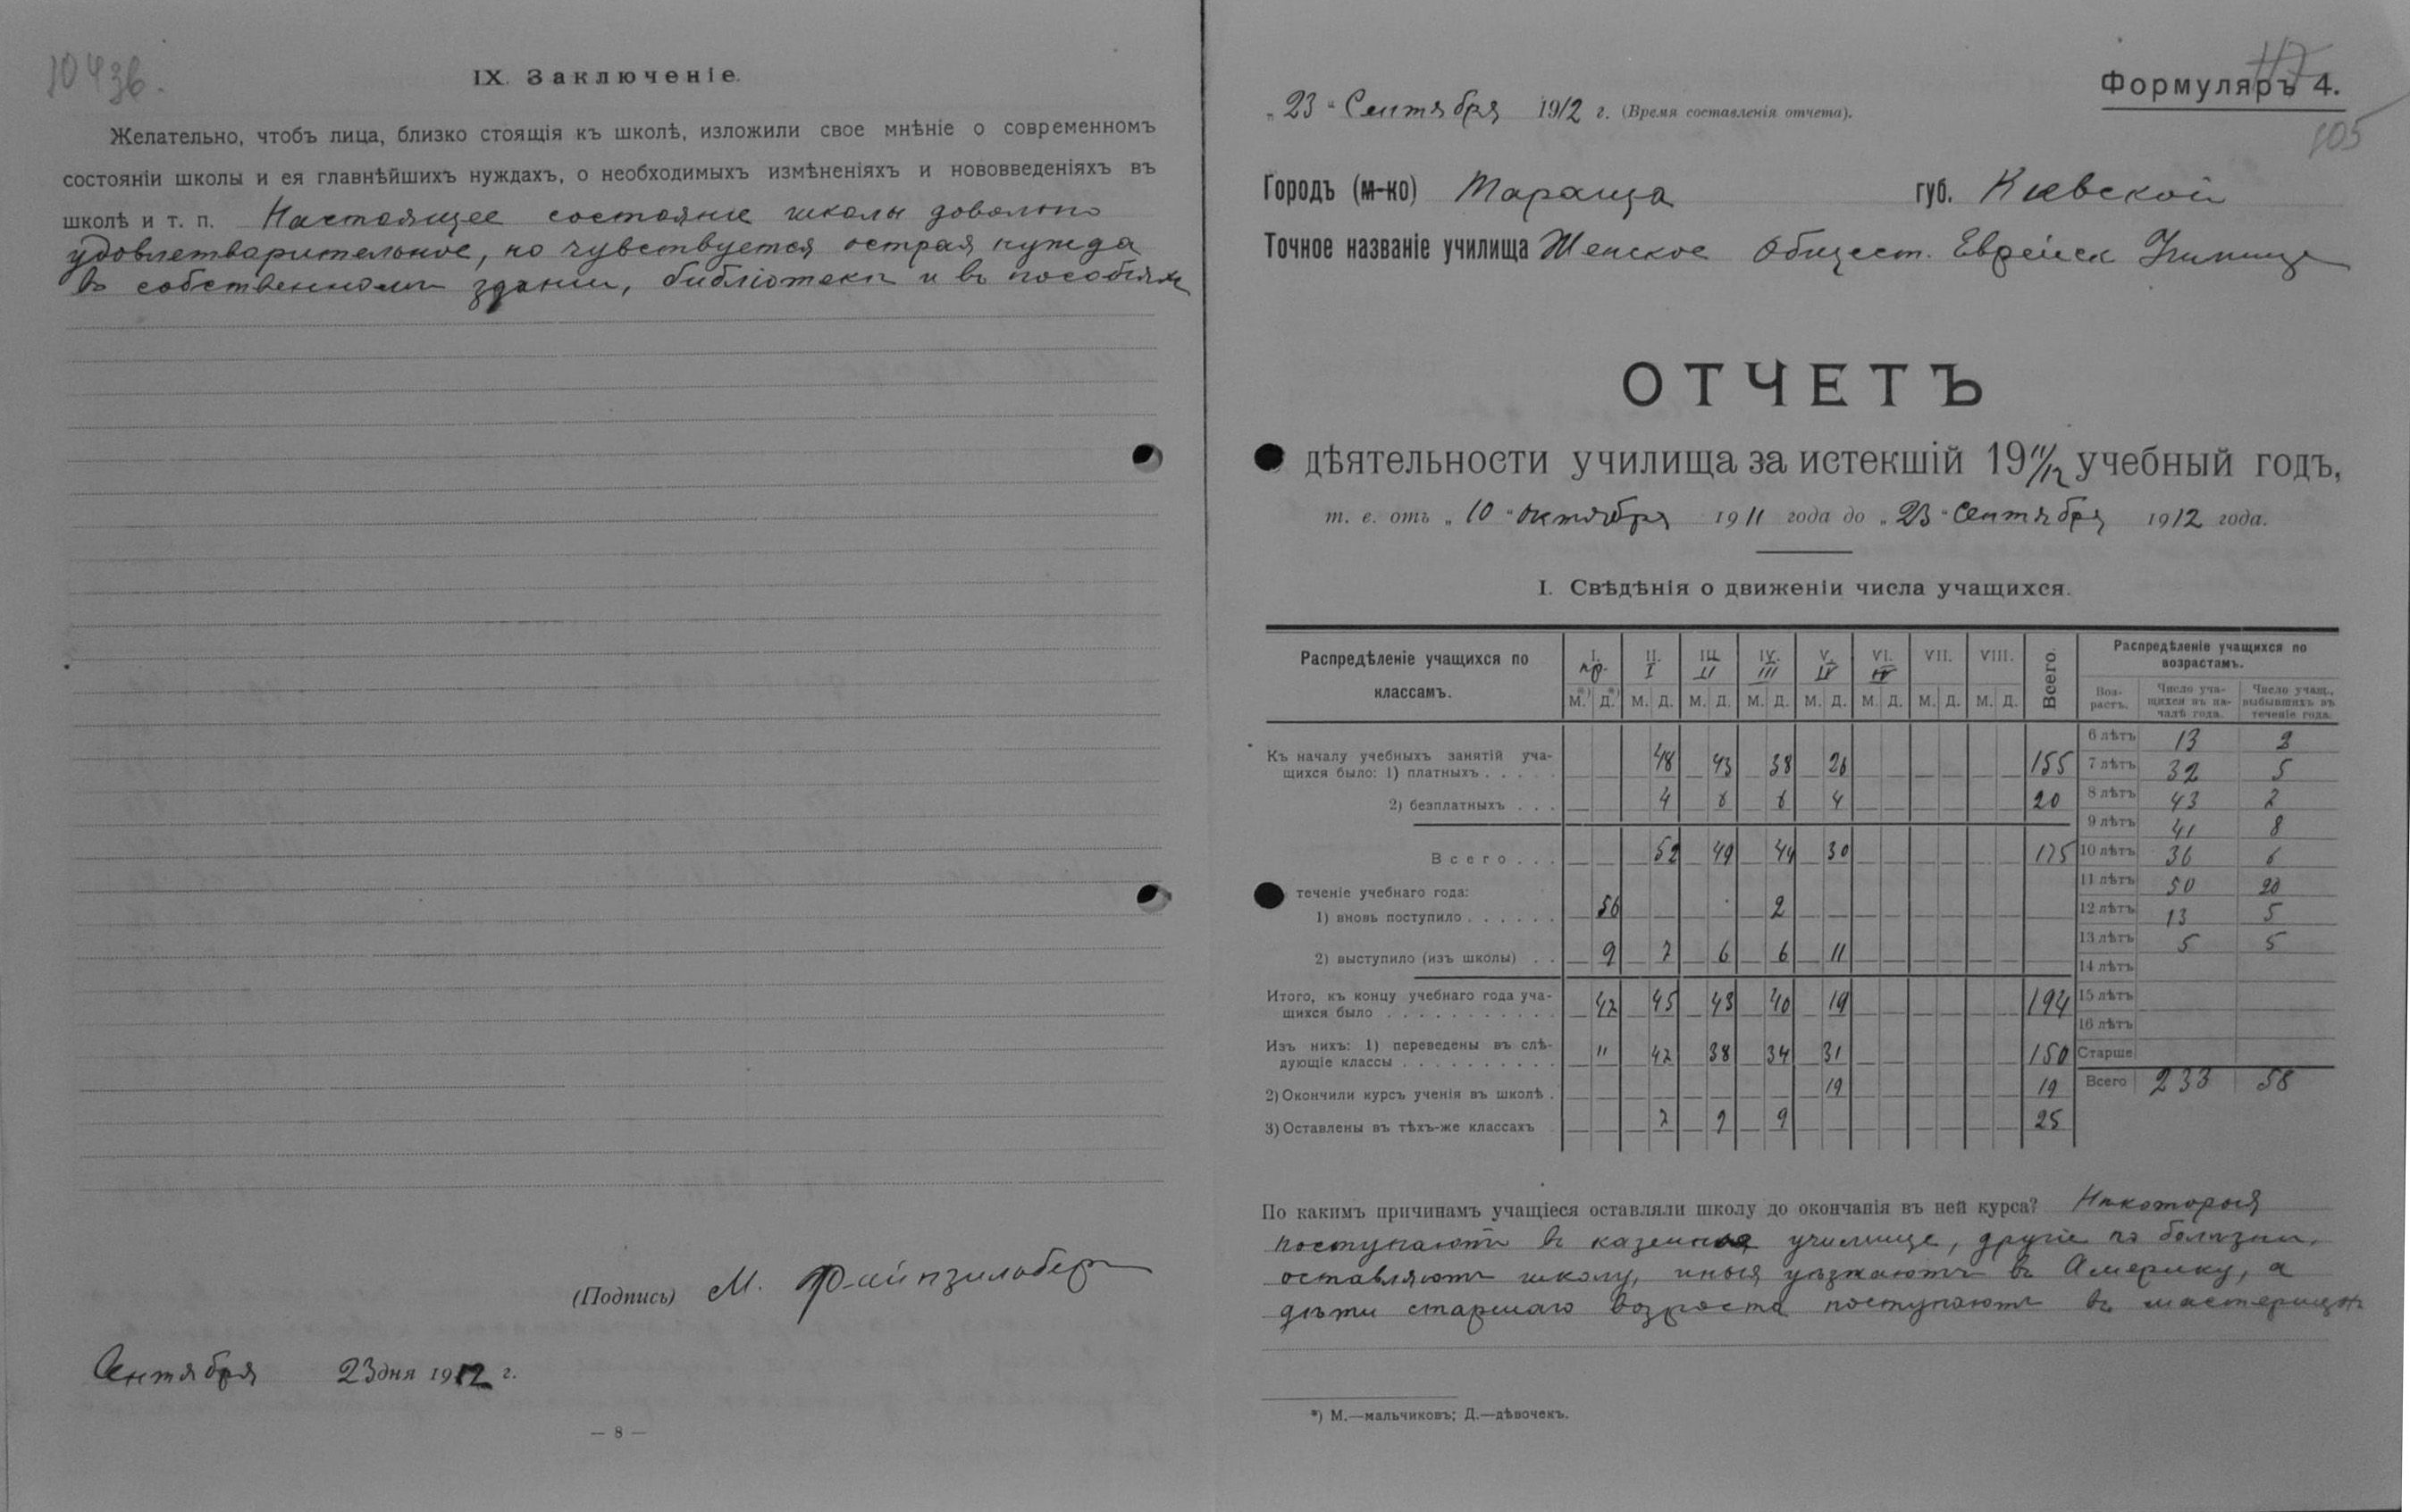 1043б.
IX. Заключеніе.
Желательно, чтобъ лица, близко стоящія къ школѣ, изложили свое мнѣніе о современномъ
состояніи школы и ея главнѣйшихъ нуждахъ, о необходимыхъ измѣненіяхъ и нововведеніяхъ въ
школѣ и т. п. Настоящее состояніе школы довольно
удовлетварительное, но чувствуется острая нужда
въ собственномъ зданіи, библіотеки и въ пособіяхъ
(Подпись) М. Файнзильберг
Сентября 23 дня 1912 г.
— 8 —
117
Формуляръ 4.
105
„ 23 “ Сентября 1912 г. (Время составленія отчета).
Городъ (м-ко) Тараща губ. Киевской
Точное названіе училища Женское Общест. Еврейск Училище
ОТЧЕТЪ
дѣятельности училища за истекшій 1911/12 учебный годъ,
т. е. отъ „ 10 “ октября 1911 года до „ 23 “ Сентября 1912 года.
I. Свѣдѣнія о движеніи числа учащихся.
Распредѣленіе учащихся по классамъ. I. II. III. IV. V. VI. VII. VIII. Всего.
пр. I II III IV IV
М.*) Д.*) М. Д. М. Д. М. Д. М. Д. М. Д. М. Д. М. Д.
Къ началу учебныхъ занятій уча-
щихся было: 1) платныхъ . . . . . 48 43 38 26 155
2) безплатныхъ . . . 4 6 6 4 20
Всего . . . 52 49 44 30 175
теченіе учебнаго года:
1) вновь поступило . . . . . . 56 2
2) выступило (изъ школы) . . 9 7 6 6 11
Итого, къ концу учебнаго года уча-
щихся было . . . . . . . . . . . 47 45 43 40 19 194
Изъ нихъ: 1) переведены въ слѣ-
дующіе классы . . . . . . . . . . " 42 38 34 31 150
2) Окончили курсъ ученія въ школѣ . 19 19
3) Оставлены въ тѣхъ-же классахъ 7 9 9 25
Распредѣленіе учащихся по
возрастамъ.
Воз-
растъ. Число уча-
щихся въ на-
чалѣ года. Число учащ.,
выбывшихъ въ
теченіе года.
6 лѣтъ 13 2
7 лѣтъ 32 5
8 лѣтъ 43 2
9 лѣтъ 41 8
10 лѣтъ 36 6
11 лѣтъ 50 20
12 лѣтъ 13 5
13 лѣтъ 5 5
14 лѣтъ
15 лѣтъ
16 лѣтъ
Старше
Всего 233 58
По какимъ причинамъ учащіеся оставляли школу до окончанія въ ней курса? Нѣкоторыя
поступаютъ въ казенное училище, другіе по болѣзни,
оставляютъ школу, иныя уѣзжаютъ въ Америку, а
дѣти старшаго возроста поступаютъ въ мастерицы
*) М.—мальчиковъ; Д.—дѣвочекъ.